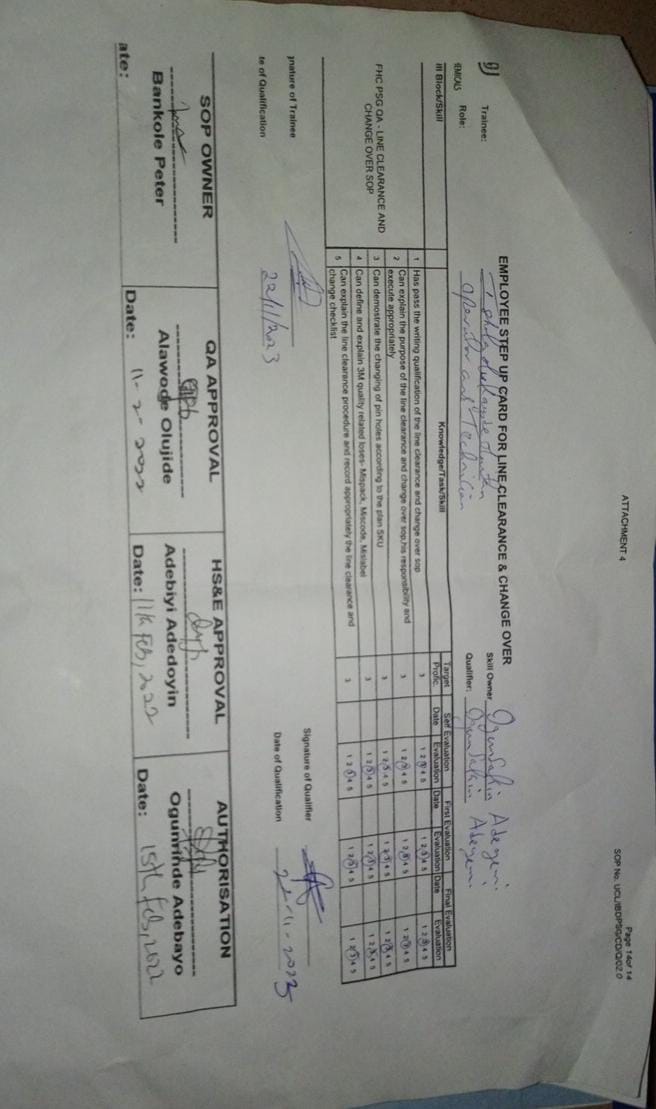 Page 14of 14
SOP No. UCL/IBDPSG/CD/Q/02.0
ATTACHMENT 4
EMPLOYEE STEP UP CARD FOR LINE CLEARANCE & CHANGE OVER
Trainee:
Skill Owner Ogunsakin Adeyemi
EMICALS Role: Operator and Technician
Qualifier: Ogunsakin Adeyemi
ill Block/Skill Knowledge/Task/Skill Target Profic. Self Evaluation First Evaluation Final Evaluation
Date Evaluation Date Evaluation Date Evaluation
FHC PSG QA - LINE CLEARANCE AND
CHANGE OVER SOP
1 Has pass the writing qualification of the line clearance and change over sop 3 1 2 3 4 5 1 2 3 4 5 1 2 3 4 5
2 Can explain the purpose of the line clearance and change over sop,his responsibility and
execute appropriately 3 1 2 3 4 5 1 2 3 4 5 1 2 3 4 5
3 Can demostrate the changing of pin holes according to the plan SKU 3 1 2 3 4 5 1 2 3 4 5 1 2 3 4 5
4 Can define and explain 3M quality related loses- Mispack, Miscode, Mislabel 3 1 2 3 4 5 1 2 3 4 5 1 2 3 4 5
5 Can explain the line clearance procedure and record appropriately the line clearance and
change checklist 3 1 2 3 4 5 1 2 3 4 5 1 2 3 4 5
gnature of Trainee
Signature of Qualifier
te of Qualification 22/11/2023
Date of Qualification 22-11-2023
SOP OWNER QA APPROVAL HS&E APPROVAL AUTHORISATION
Bankole Peter Alawode Olujide Adebiyi Adedoyin Ogunrinde Adebayo
ate: Date: 11-2-2022 Date: 11th Feb, 2022 Date: 15th Feb, 2022